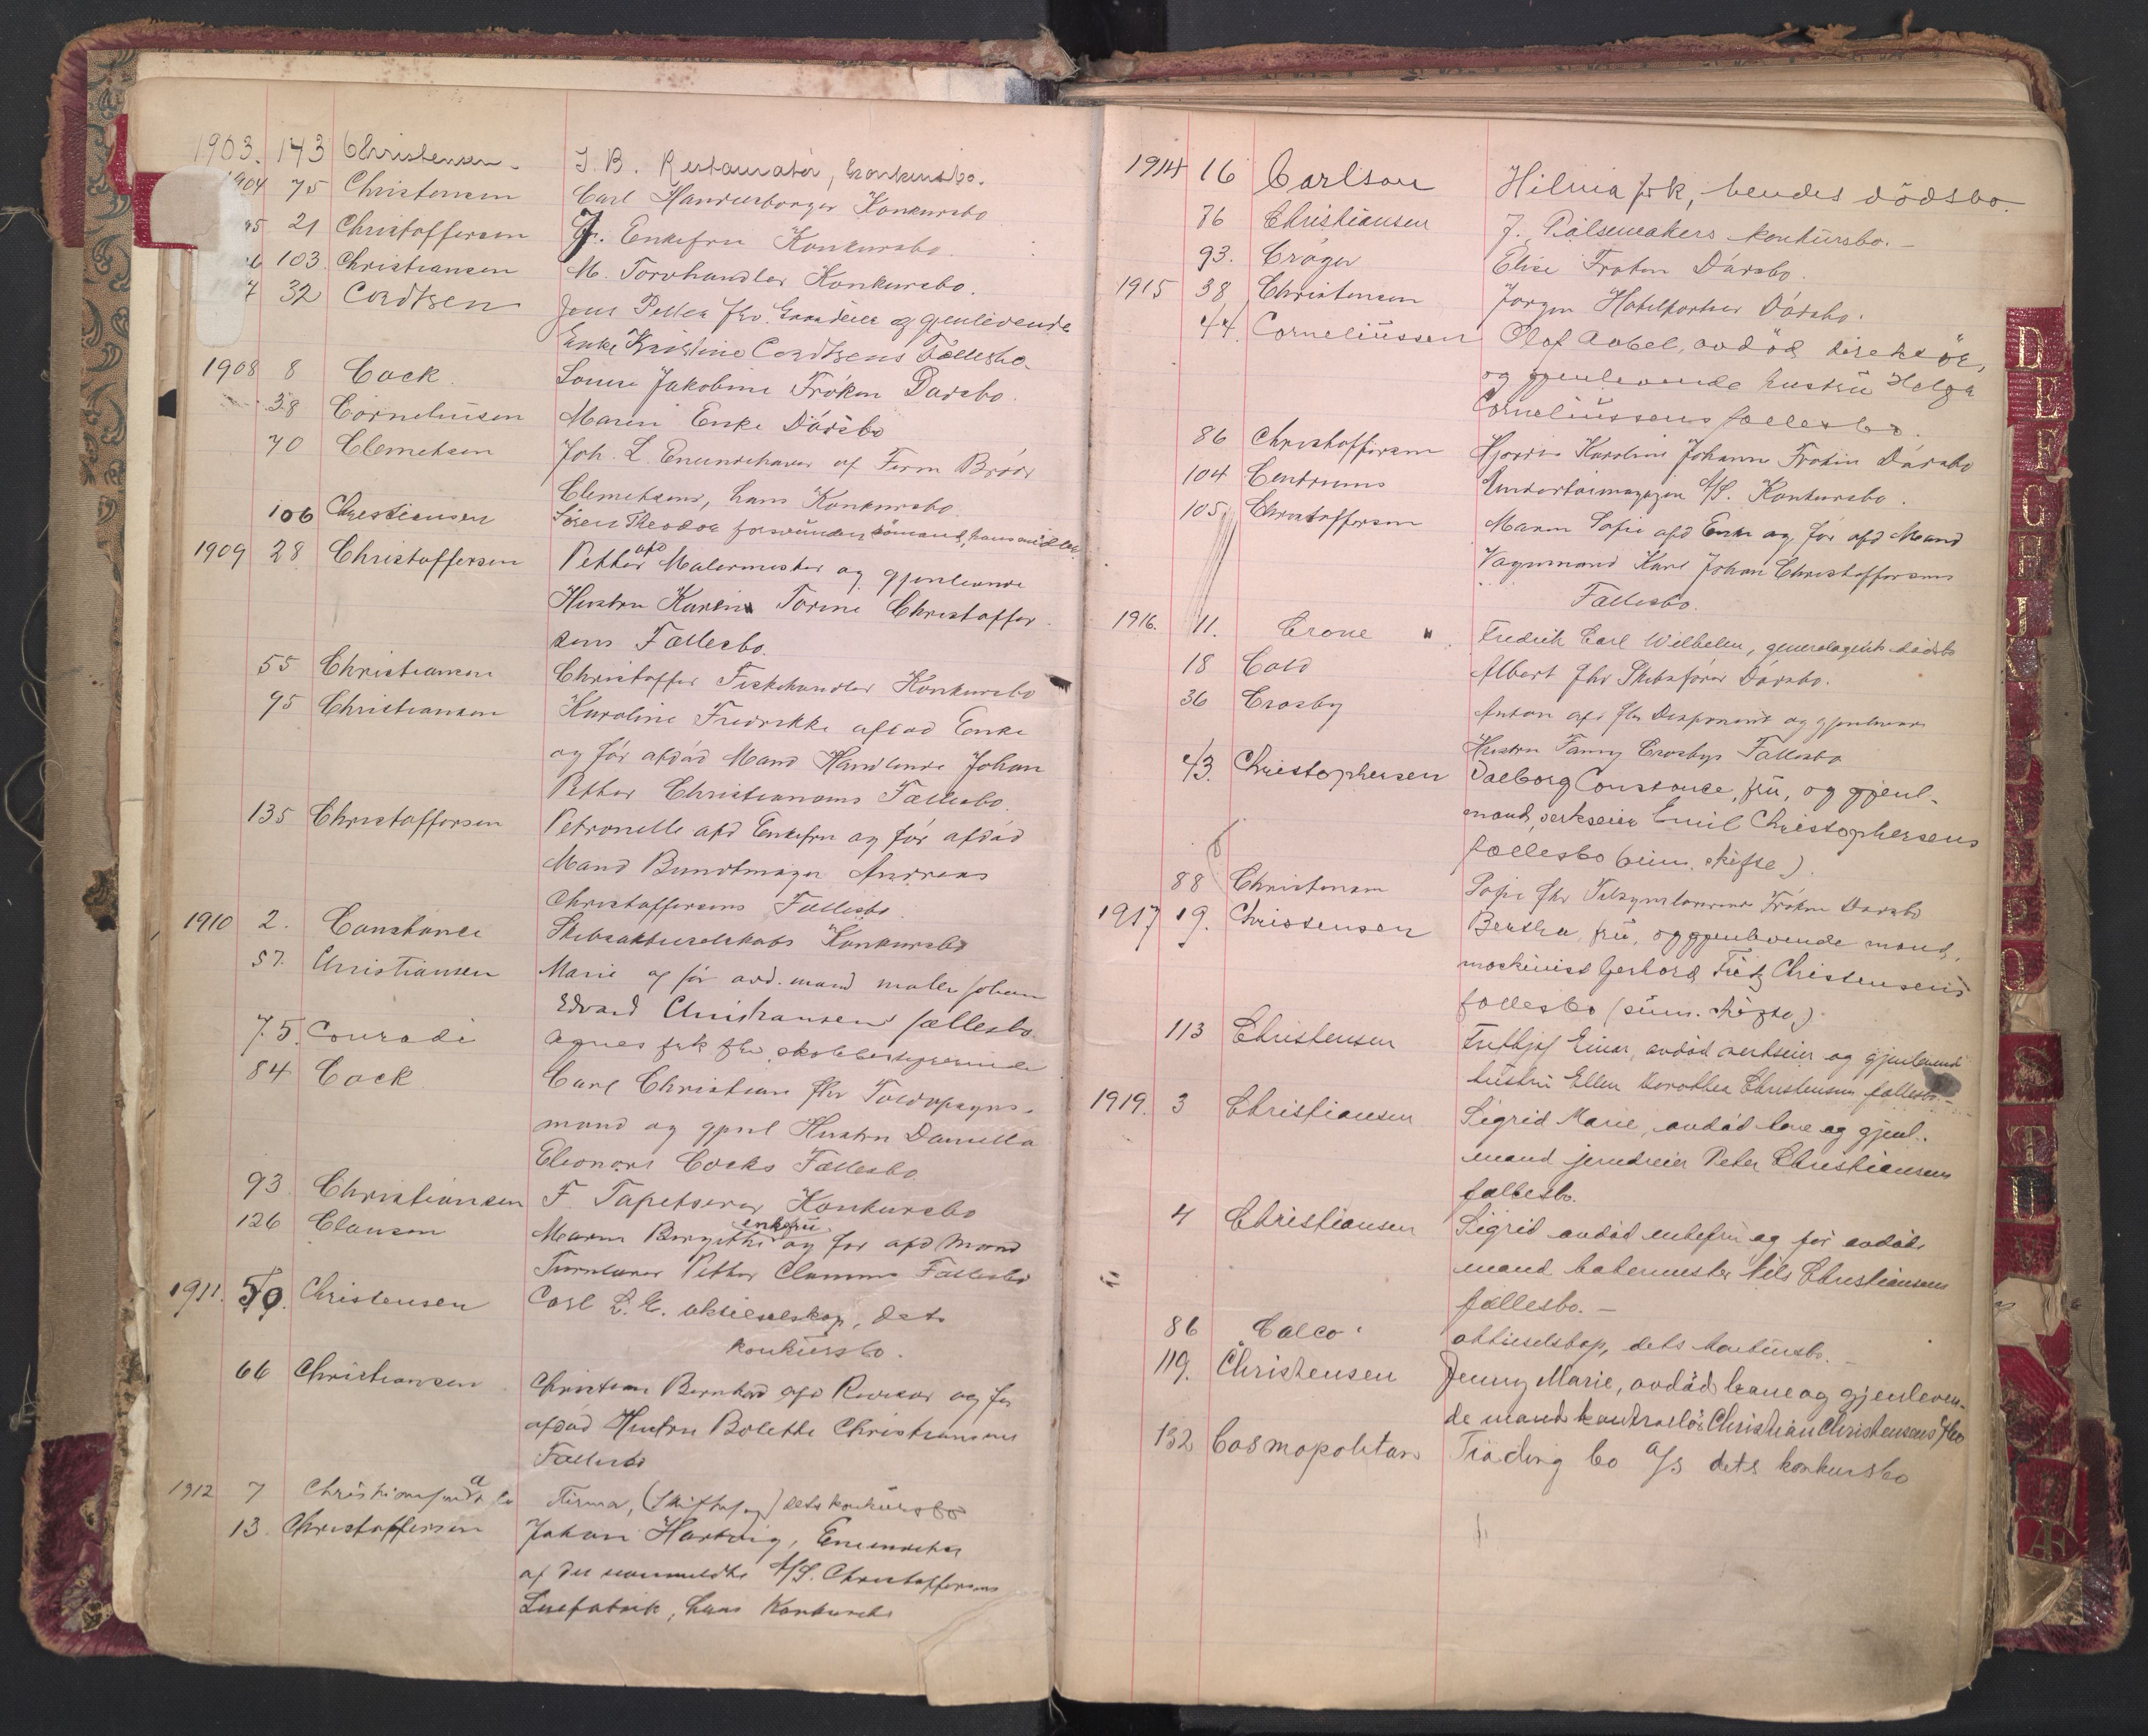 1903. 143 Christensen. J. B. Restauratør, konkursbo.
1904 75 Christensen Carl Handusborger Konkursbo
21 Christoffersen Enkefru Konkursbo.
103. Christiansen M. Torvhandler Konkursbo.
32 Cordtsen Jens Petter fhv. Gaardeier og gjenlevende
Enke Kristine Cordtsens Fællesbo.
1908 8 Cock. Louise Jakobine Frøken Dødsbo.
38 Corneliusen Maren Enke Dødsbo
70 Clemetsen Joh. L. Eneindehaver af Firm Brødr
Clemetsen, hans Konkursbo.
106 Christiansen Søren Theodor forsvunden sømand, hans midler.
1909 28 Christoffersen Petter afd Malermester og gjenlevende
Hustru Karen Torine Christoffer
sens Fællesbo.
55 Christiansen Christoffer Fiskehandler Konkursbo
95 Christiansen Karoline Fredrikke afdød Enke
og før afdød Mand Handlende Johan
Petter Christiansens Fællesbo.
135 Christoffersen Petronelle afd Enkefru og før afdød
Mand Bundtmager Andreas
Christoffersens Fællesbo.
1910 2. Constance Skibsaktieselskabs Konkursbo
57. Christiansen Marie og før avd. mand maler Johan
Edvard Christiansens fællesbo.
75. Conradi Agnes frk fhv. skolebestyrerinde
84 Cock Carl Christian fhv Toldopsyns-
mand og gjenl Hustru Daniella
Eleonore Cocks Fællesbo.
93. Christiansen F. Tapetserer Konkursbo
126 Clausen Maren Birgitthe enkefrü og før afd Mand
Petter Clausens Fællesbo
1911. 50. Christensen Carl L. E. aktieselskap, dets
konkürsbo.
66 Christiansen Christian Bernhard afd Revisor og før
afdød Hustru Bolette Christiansens
Fællesbo
1912 7 Firma, dets konkürsbo
13. Christoffersen Johan Hartvig,
af det uanmeldte A/S. Christoffersens
hans Konkursbo
1914 16 Carlson Hilma frk, hendes dödsbo.
76 Christiansen J. Pølsemakers konkürsbo.-
93. Crøger Elise Frøken Dødsbo.
1915 38 Christensen Jørgen Hotelportier Dødsbo.
44. Corneliüssen Olaf Aabel, avdød direktör,
og gjenlevende hustrü Helga
Corneliüssens fællesbo.
86 Christoffersen Hjørdis Karoline Johanne Frøken Dødsbo
104 Centrums A/S. Konkursbo.
105 Christoffersen Maren Sofie afd Enke og før afd Mand
Vognmand Karl Johan Christoffersens
Fællesbo.
1916. 11. Crone Fredrik Carl Wilhelm, generalagent dødsbo
18 Cold Albert fhv Skibsfører Dødsbo.
36 Crosby Anton afd fhv Disponent og gjenlevende
Hustru Fanny Crosbys Fællesbo
43. Christophersen Dalborg Constance, frü, og gjenl.
mand, verkseier Emil Christophersens
fællesbo (süm. skifte).
88 Christensen Sofie fhv Frøken Dødsbo
1917 19. Christensen Bertha, frü, og gjenlevende mand,
maskinist Gerhard Fritz Christensens
fællesbo (süm. skifte).
113 Christensen Fritthjof Einar, avdød verkseier og gjenlevende
hüstrü Ellen Dorothea Christensens fællesbo-
1919. 3 Christiansen Sigrid Marie, avdød kone og gjenl.
mand jerndreier Peter Christiansens
fællesbo.
4 Christiansen Sigrid avdød enkefrü og før avdøde
mand bakermester Nils Christiansens
fællesbo.-
86 Calco. aktieselskap, dets konkürsbo.-
119. Christensen Jenny Marie, avdöd kone og gjenleven-
de mand kontrollør Christian Christensens f.bo
132 Cosmopolitan Trading Co A/S dets konkursbo
D
E
F
G
H